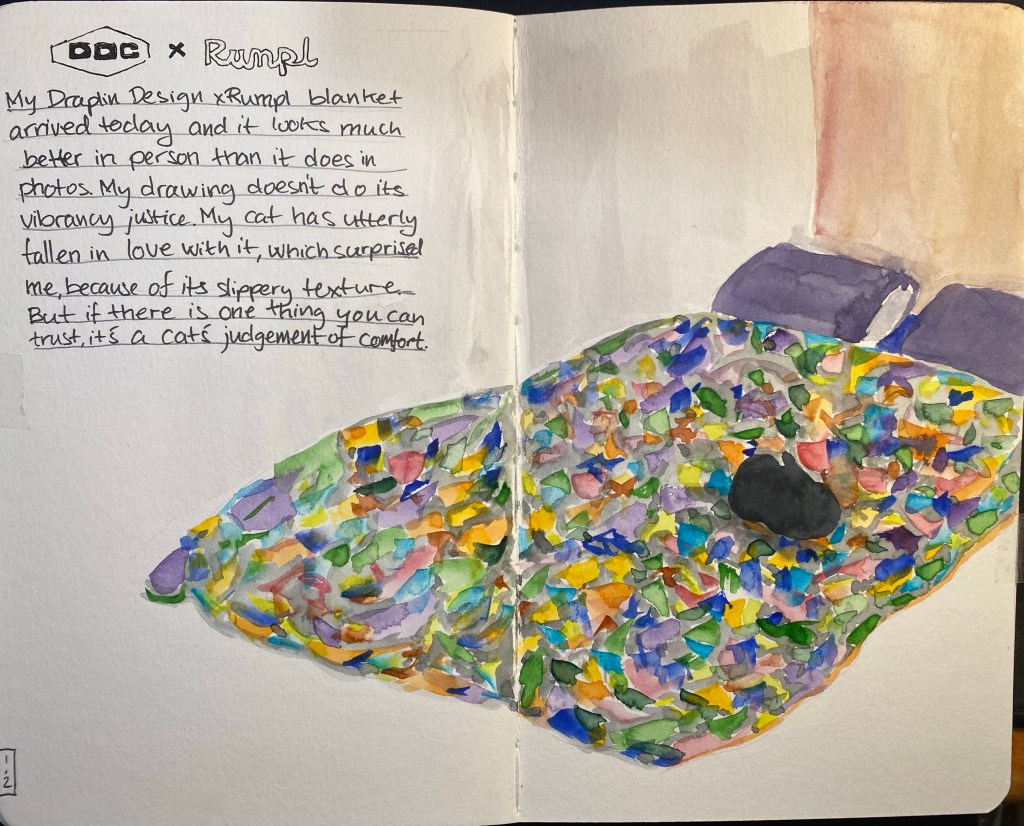 DDC x Rumpl
My Draplin Design x Rumpl blanket
arrived today and it looks much
better in person than it does in
photos. My drawing doesn't do its
vibrancy justice. My cat has utterly
fallen in love with it, which surprised
me, because of its slippery texture.
But if there is one thing you can
trust, it's a cat's judgement of comfort.
1.2